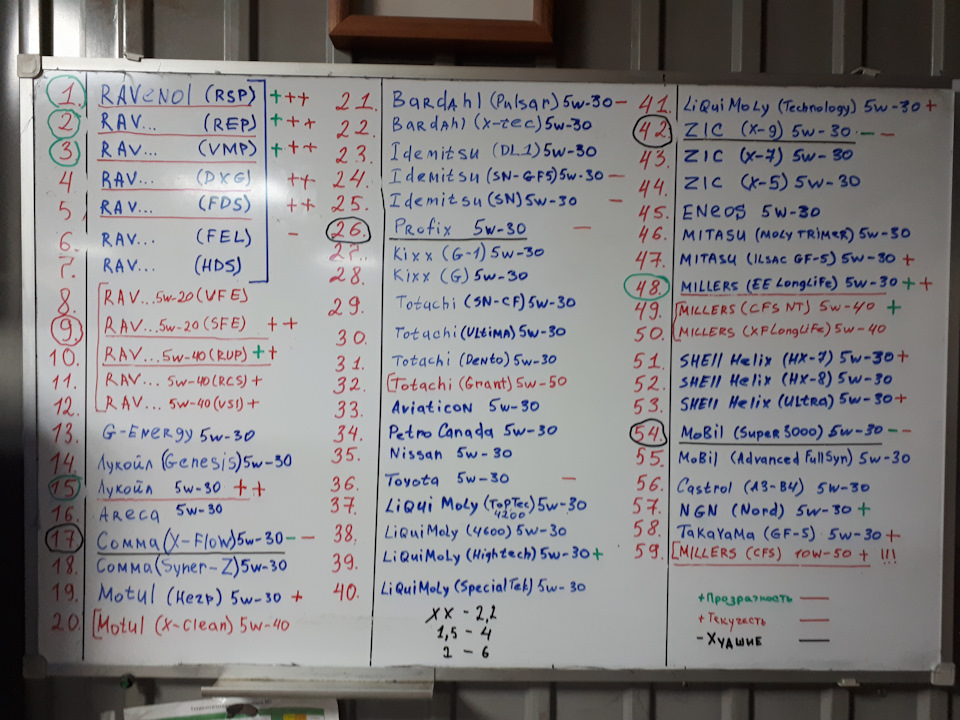 1. RAVENOL (RSP) +++
2 RAV... (REP) +++
3 RAV... (VMP) +++
4 RAV... (DXG) ++
5 RAV... (FDS) ++
6. RAV... (FEL) -
7. RAV... (HDS)
8. RAV...5w-20 (VFE)
9. RAV...5w-20 (SFE) ++
10. RAV...5w-40 (RUP) ++
11. RAV... 5w-40 (RCS) +
12. RAV... 5w-40 (VSI) +
13. G-ENERGY 5w-30
14. Лукойл (Genesis) 5w-30
15 Лукойл 5w-30 ++
16. Areca 5w-30
17 Comma (X-Flow) 5w-30 --
18. Comma (Syner-Z) 5w-30
19. Motul (Негр) 5w-30 +
20. Motul (X-clean) 5w-40
21. BARDAHl (Pulsar) 5w-30 -
22. BARDAHl (X-tec) 5w-30
23. Idemitsu (DL.1) 5w-30
24. Idemitsu (SN-GF5) 5w-30 -
25. Idemitsu (SN) 5w-30 -
26. Profix 5w-30 -
27. Kixx (G-1) 5w-30
28. Kixx (G) 5w-30
29. Totachi (SN-CF) 5w-30
30. Totachi (ULtiMA) 5w-30
31. Totachi (Dento) 5w-30
32. Totachi (Grant) 5w-50
33. Aviaticon 5w-30
34. Petro Canada 5w-30
35. Nissan 5w-30
36. Toyota 5w-30 -
37. LiQUi MoLy (TopTec 4200) 5w-30
38. LiQUiMoLy (4600) 5w-30
39. LiQUiMoLy (Hightech) 5w-30 +
40. LiQUiMoLy (SpecialTek) 5w-30
XX - 2,2
1,5 - 4
1 - 6
41. LiQuiMoLy (Technology) 5w-30 +
42. ZIC (X-9) 5w-30 --
43. ZIC (X-7) 5w-30
44. ZIC (X-5) 5w-30
45. ENEOS 5w-30
46. MITASU (MOLY TRIMER) 5w-30
47. MITASU (ILSAC GF-5) 5w-30 +
48. MILLERS (EE LongLife) 5w-30 ++
49. MILLERS (CFS NT) 5w-40 +
50. MILLERS (XFLongLife) 5w-40
51. SHEll Helix (HX-7) 5w-30 +
52. SHEll Helix (HX-8) 5w-30
53. SHEll Helix (ULtRA) 5w-30 +
54. MoBil (Super 3000) 5w-30 --
55. MoBil (Advanced FullSyn) 5w-30
56. Castrol (A3-B4) 5w-30
57. NGN (Nord) 5w-30 +
58. TAKAYAMA (GF-5) 5w-30 +
59. MILLERS (CFS) 10w-50 + !!!
+Прозрачность
+Текучесть
-Худшие